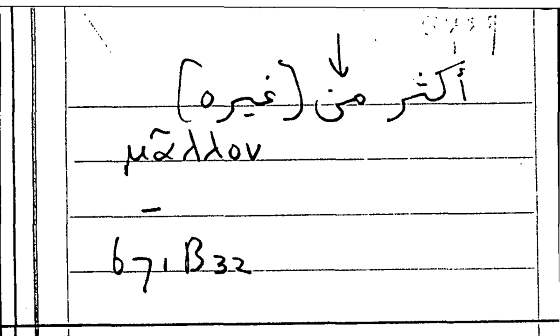 أكثر من (غيره)
μᾶλλον
–
671 B32